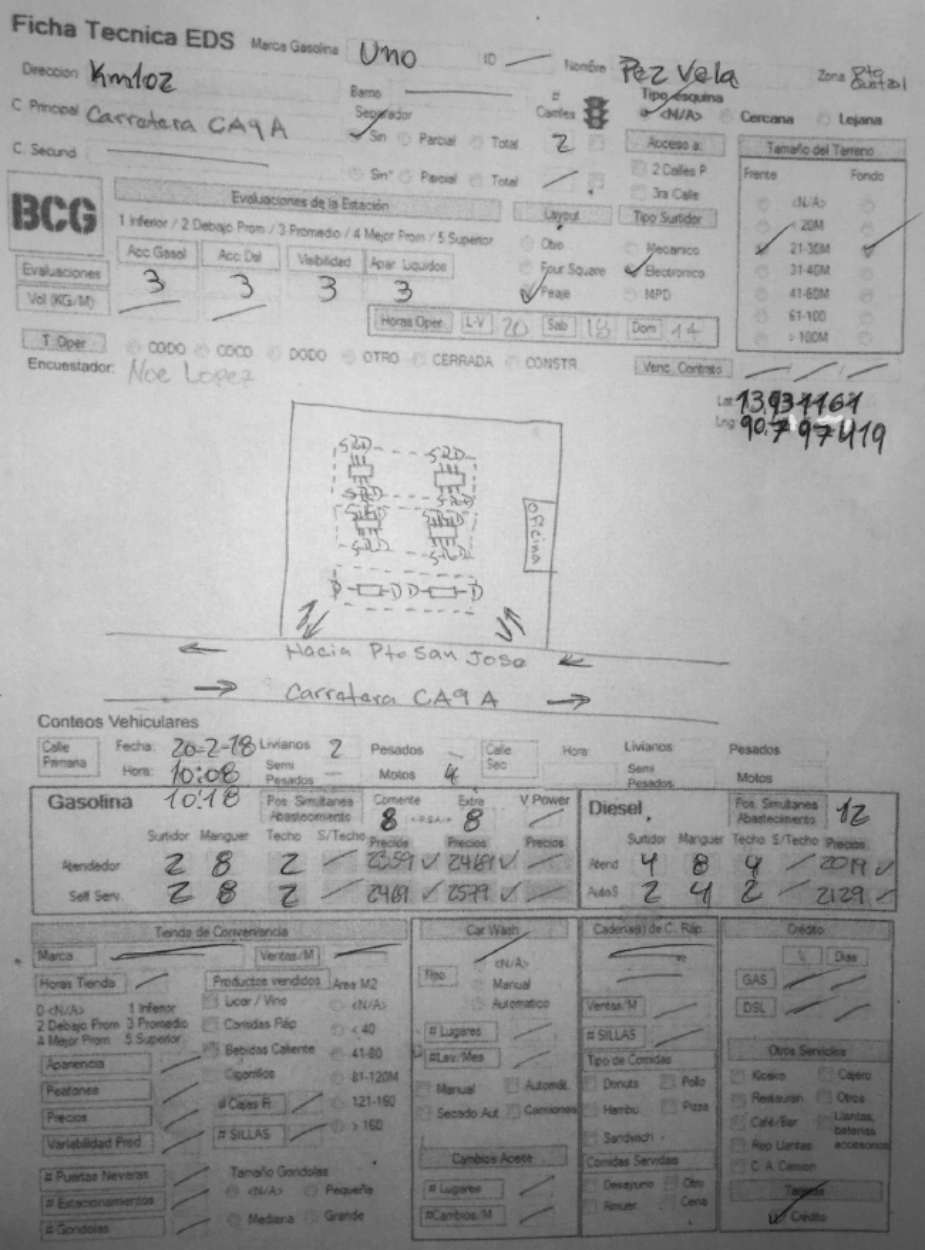 Ficha Tecnica EDS Marca Gasolina Uno ID Nombre Pez Vela Zona
Direccion Km102 Barrio # Carriles Tipo esquina
C. Principal Carratera CA9A Separador Sin Parcial Total 2 <N/A> Cercana Lejana
C. Secund. Sin" Parcial Total
Acceso a:
2 Calles P
3ra Calle
Tamaño del Terreno
Frente Fondo
<N/A>
< 20M
21-30M
31-40M
41-60M
61-100
> 100M
BCG
Evaluaciones de la Estación
1 Inferior / 2 Debajo Prom / 3 Promedio / 4 Mejor Prom / 5 Superior
Acc Gasol Acc Dsl Visibilidad Apar. Liquidos
Evaluaciones 3 3 3 3
Vol (KG/M)
Layout
Otro
Four Square
Peaje
Tipo Surtidor
Mecanico
Electronico
MPD
Horas Oper L-V 20 Sab 18 Dom 14
T. Oper CODO COCO DODO OTRO CERRADA CONSTR Venc. Contrato
Encuestador: Noe Lopez
Lat
Lng
SRD SRD
SRD SRD
SRD SRD
SRD SRD
D D D D
oficina
Hacia Pto San Jose
Carratara CA9A
Conteos Vehiculares
Calle Primaria Fecha: 20-2-18 Livianos 2 Pesados Calle Sec Hora: Livianos Pesados
Hora: 10:08 Semi Pesados Motos 4 Semi Pesados Motos
10:18
Gasolina Pos. Simultanea Abastecimiento Corriente 8 Extra 8 V Power
Surtidor Manguer Techo S/Techo Precios Precios Precios
Atendedor 2 8 2 2359 2469
Self Serv. 2 8 2 2469 2579
Diesel Pos. Simultanea Abastecimiento 12
Surtidor Manguer Techo S/Techo Precios
Atend 4 8 4 2019
AutoS 2 4 2 2129
Tienda de Conveniencia
Marca Ventas/M
Horas Tienda Productos vendidos Area M2
0 <N/A> 1 Inferior
2 Debajo Prom 3 Promedio
4 Mejor Prom 5 Superior
Licor / Vino
Comidas Ráp
Bebidas Caliente
Cigarrillos
<N/A>
< 40
41-80
81-120M
121-160
> 160
Apariencia
Peatones
Precios
Variabilidad Prod
# Cajas R.
# SILLAS
# Puertas Neveras
# Estacionamientos
# Gondolas
Tamaño Gondolas
<N/A> Pequeña
Mediana Grande
Car Wash
Tipo
<N/A>
Manual
Automatico
# Lugares
#Lav/Mes
Manual Automát.
Secado Aut Camiones
Cambios Aceite
# Lugares
#Cambios/M
Cadena(s) de C. Ráp
Ventas/M
# SILLAS
Tipo de Comidas
Donuts Pollo
Hambu Pizza
Sandwich
Comidas Servidas
Desayuno Otro
Almuer. Cena
Crédito
% Dias
GAS
DSL
Otros Servicios
Kiosko Cajero
Restauran Otros
Café/Bar Llantas, baterias accesorios
Rep Llantas
C. A. Camion
Tarjetas
Crédito